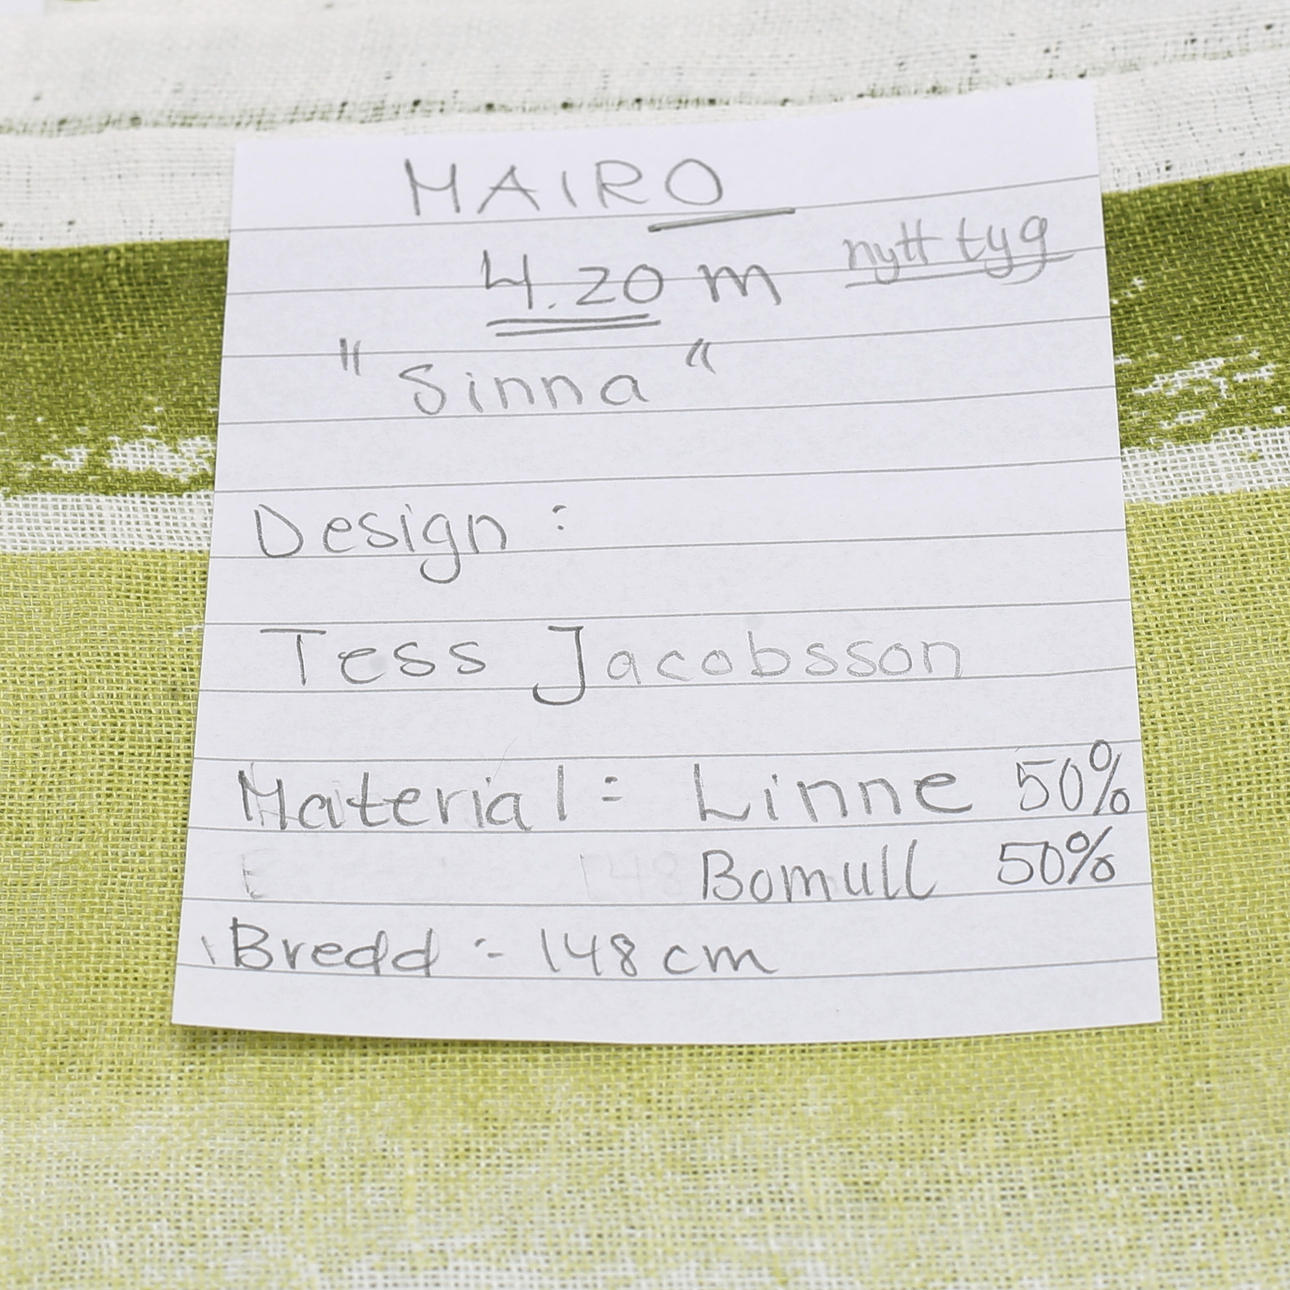 MAIRO
4.20 m nytt tyg
"Sinna"
Design :
Tess Jacobsson
Material : Linne 50%
Bomull 50%
Bredd : 148 cm